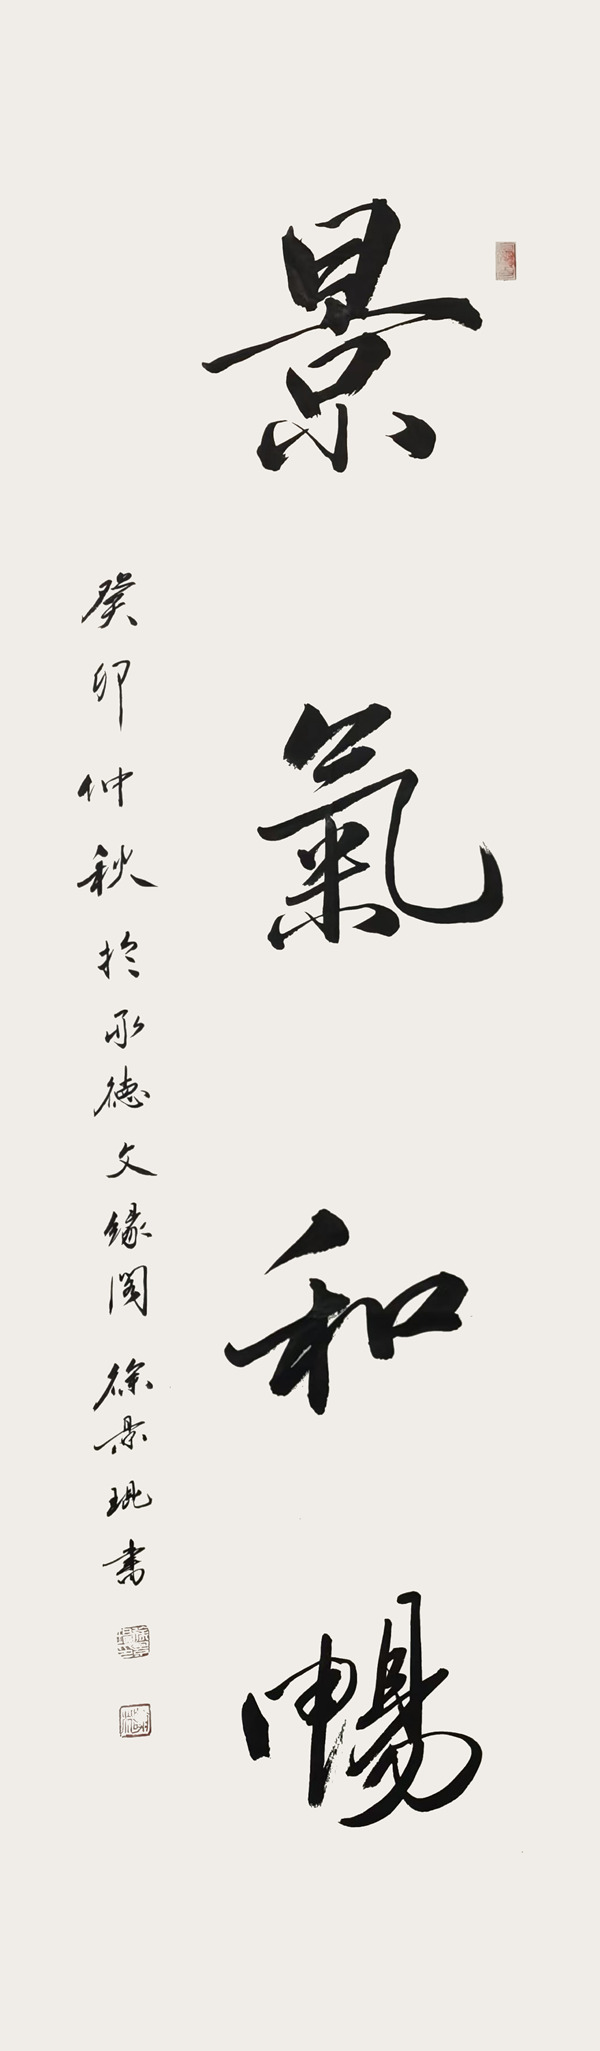 景氣和暢
癸卯仲秋於承德文缘阁徐景琨書